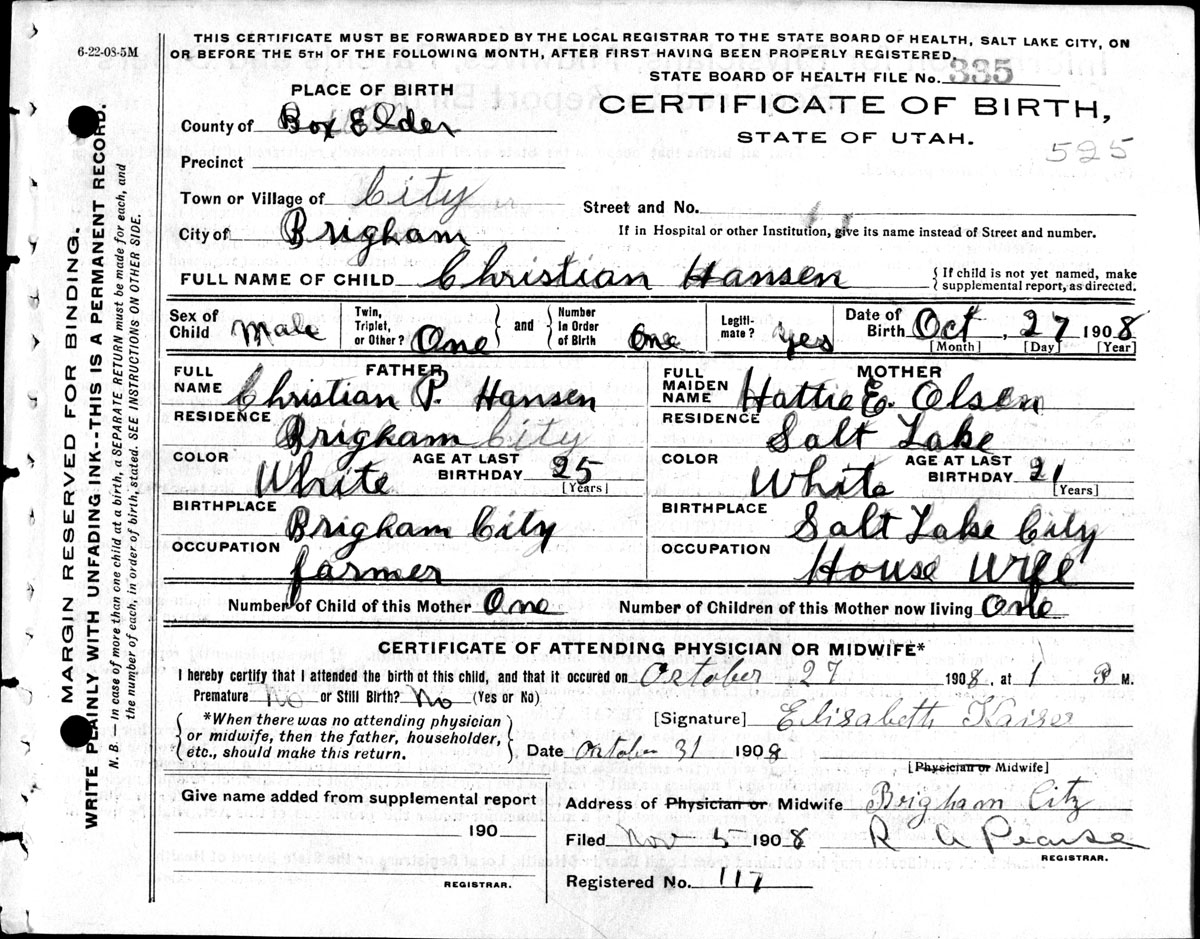 6-22-08-5M
THIS CERTIFICATE MUST BE FORWARDED BY THE LOCAL REGISTRAR TO THE STATE BOARD OF HEALTH, SALT LAKE CITY, ON
OR BEFORE THE 5TH OF THE FOLLOWING MONTH, AFTER FIRST HAVING BEEN PROPERLY REGISTERED.
STATE BOARD OF HEALTH FILE No. 335
MARGIN RESERVED FOR BINDING.
WRITE PLAINLY WITH UNFADING INK--THIS IS A PERMANENT RECORD.
N. B. — In case of more than one child at a birth, a SEPARATE RETURN must be made for each, and
the number of each, in order of birth, stated. SEE INSTRUCTIONS ON OTHER SIDE.
PLACE OF BIRTH
CERTIFICATE OF BIRTH,
STATE OF UTAH.
525
County of Box Elder
Precinct
Town or Village of City
Street and No.
City of Brigham
If in Hospital or other Institution, give its name instead of Street and number.
FULL NAME OF CHILD Christian Hansen
{ If child is not yet named, make
supplemental report, as directed.
Sex of Child Male
Twin, Triplet, or Other? One } and { Number in Order of Birth One
Legitimate? Yes
Date of Birth Oct, 27 1908
[Month] [Day] [Year]
FATHER
FULL NAME Christian P. Hansen
RESIDENCE Brigham City
COLOR White AGE AT LAST BIRTHDAY 25
[Years]
BIRTHPLACE Brigham City
OCCUPATION farmer
MOTHER
FULL MAIDEN NAME Hattie E. Olsen
RESIDENCE Salt Lake
COLOR White AGE AT LAST BIRTHDAY 21
[Years]
BIRTHPLACE Salt Lake City
OCCUPATION House Wife
Number of Child of this Mother One Number of Children of this Mother now living One
CERTIFICATE OF ATTENDING PHYSICIAN OR MIDWIFE*
I hereby certify that I attended the birth of this child, and that it occured on October 27 1908, at 1 P M.
Premature No or Still Birth? No (Yes or No)
{ *When there was no attending physician
or midwife, then the father, householder,
etc., should make this return. }
[Signature] Elisabeth Kaiser
Date October 31 1908
[Physician or Midwife]
Give name added from supplemental report
190
REGISTRAR.
Address of Physician or Midwife Brigham City
Filed Nov 5 1908 R A Pearse
REGISTRAR.
Registered No. 117